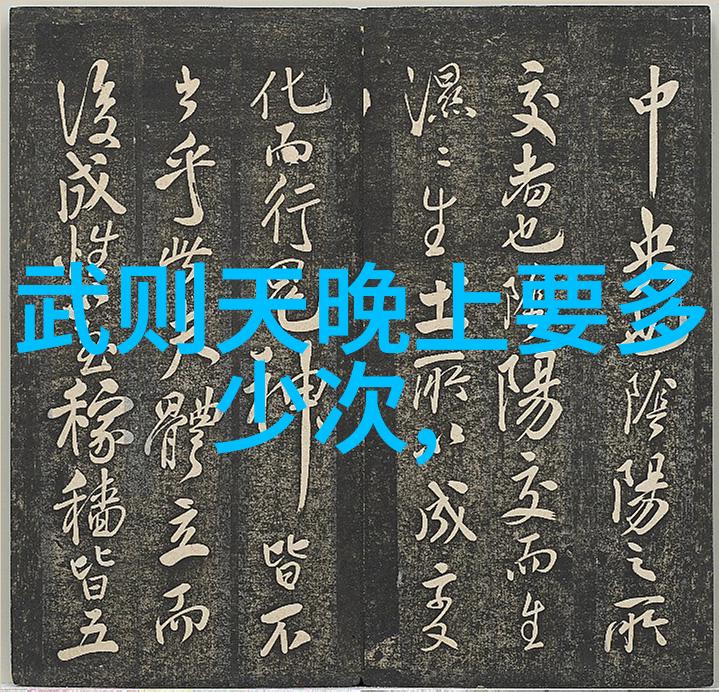 武则天晚上要多
少次,
中央也陰陽之所
交者也陰陽交而生
濕〻生土所以成變
化而行鬼神皆不
乎體立而
後成性稼穡皆五